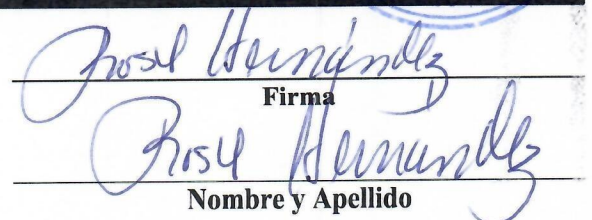 Rosy Hernández
Firma
Rosy Hernandez
Nombre y Apellido